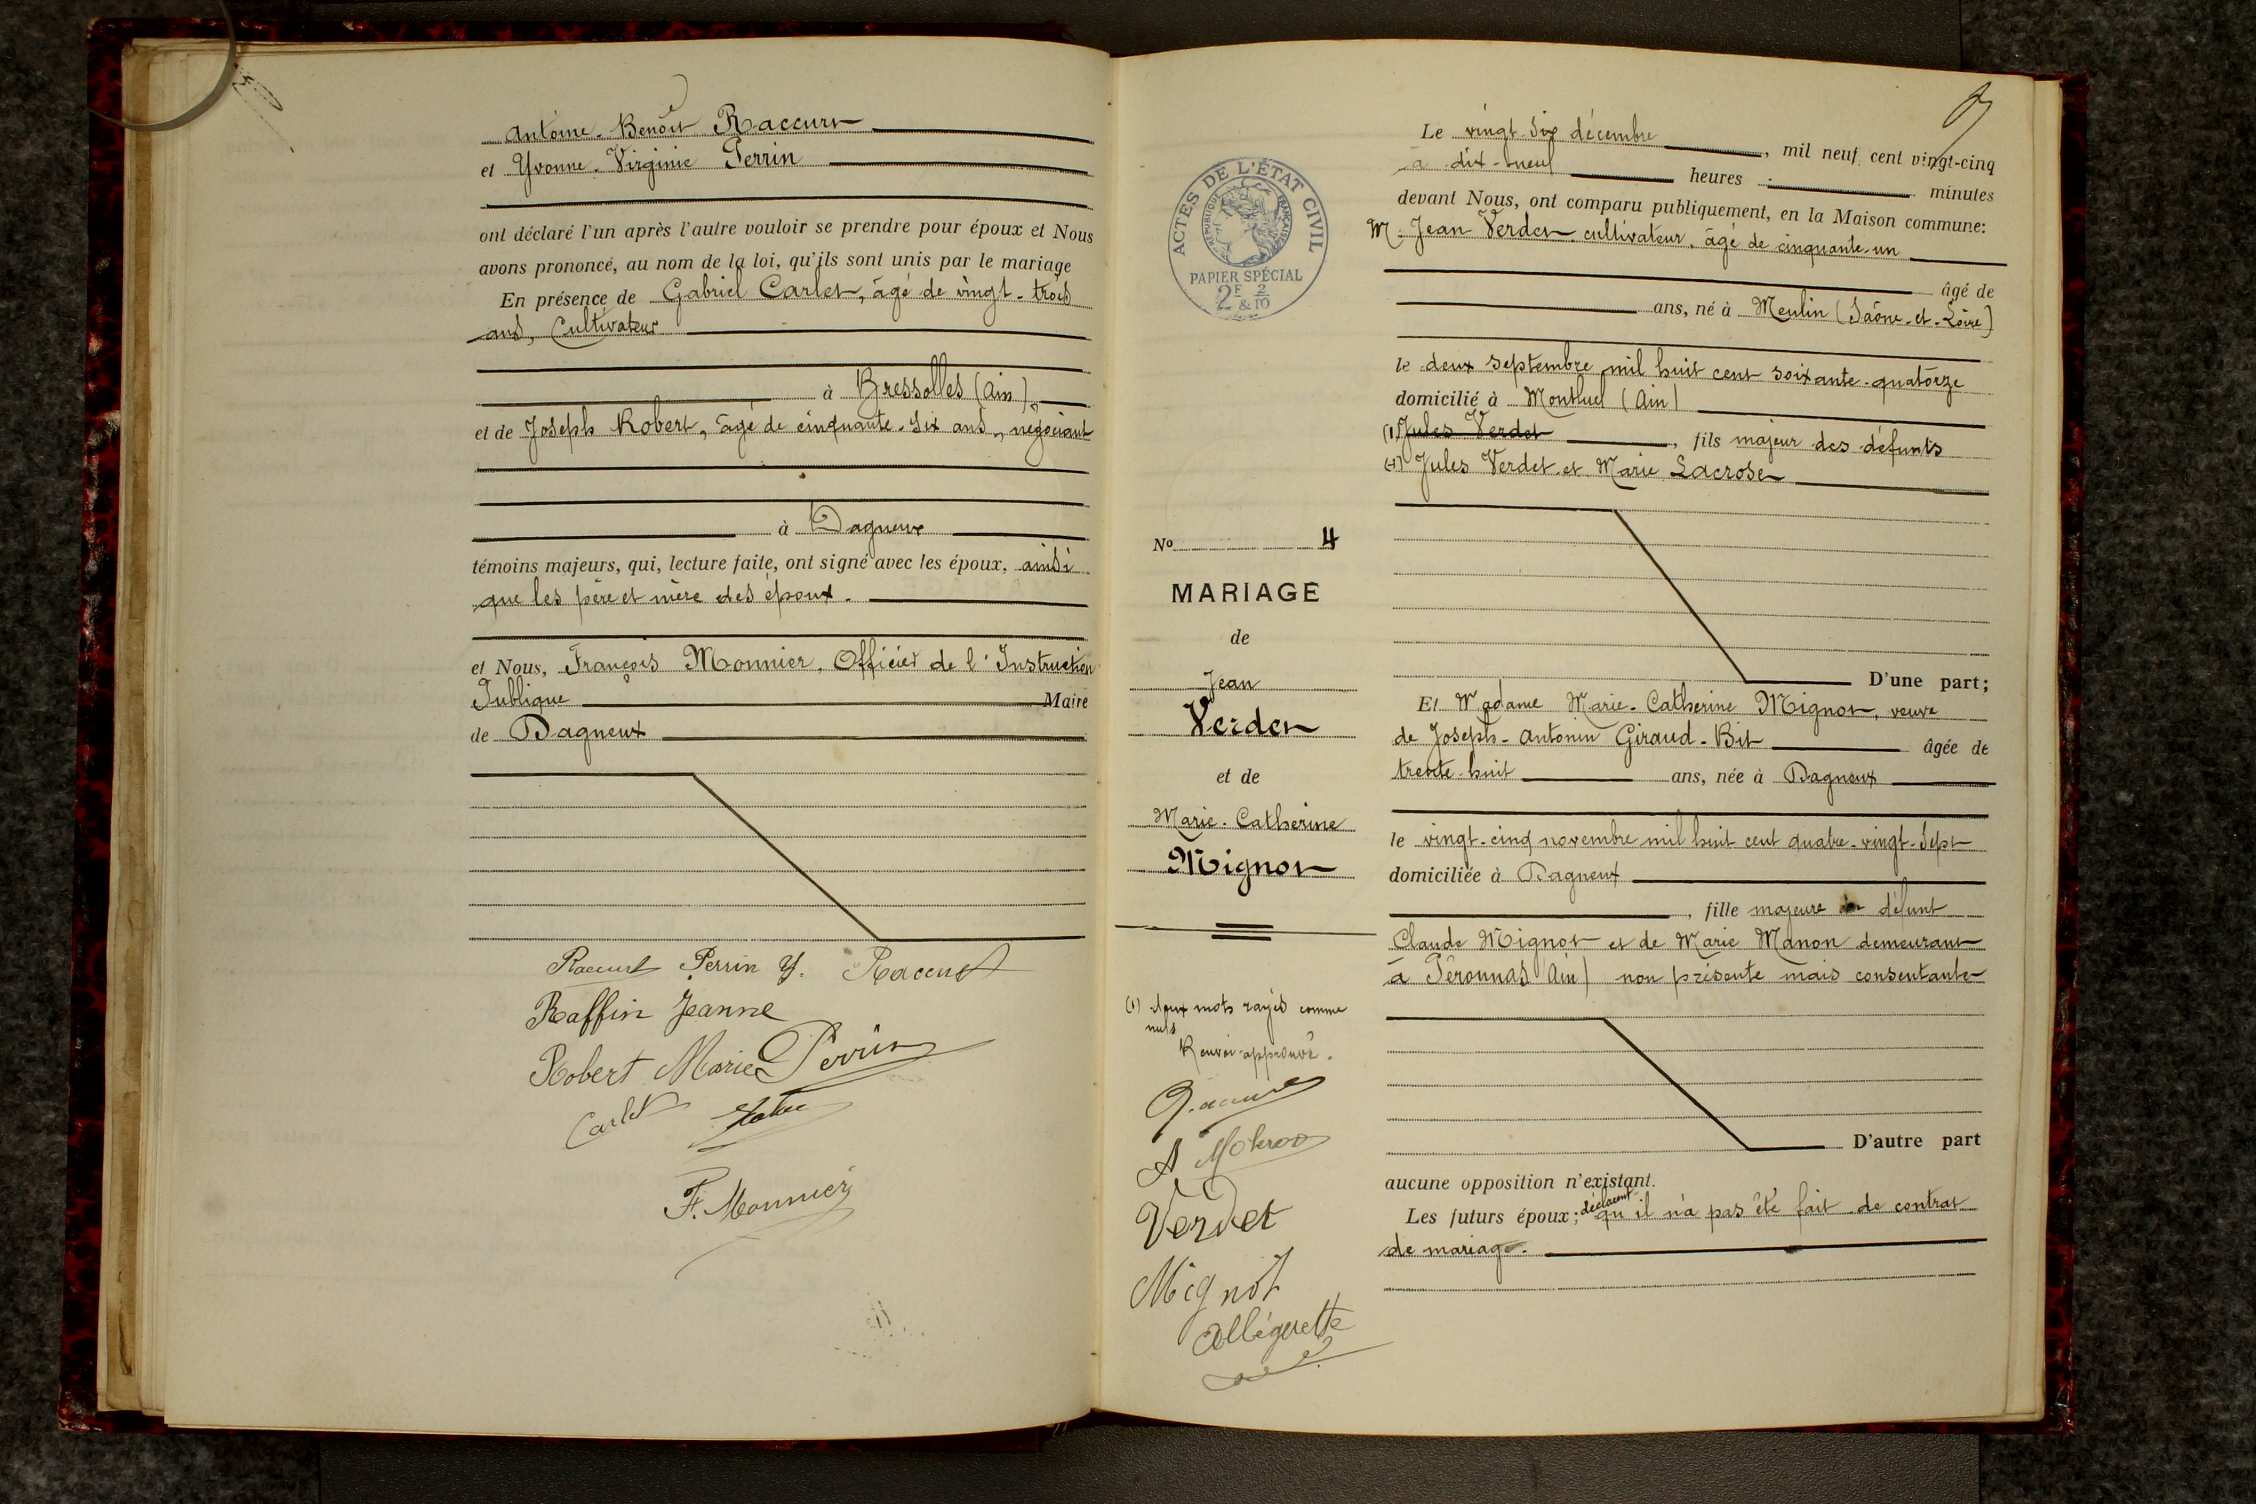 Antoine-Benoit Raccurt
et Yvonne-Virginie Perrin
ont déclaré l'un après l'autre vouloir se prendre pour époux et Nous
avons prononcé, au nom de la loi, qu'ils sont unis par le mariage
En présence de Gabriel Carlet, âgé de vingt-trois
ans, Cultivateur
à Bressolles (Ain),
et de Joseph Robert, âgé de cinquante-six ans, négociant
à Dagneux
témoins majeurs, qui, lecture faite, ont signé avec les époux, ainsi
que les père et mère des époux.
et Nous, François Monnier, Officier de l'Instruction
Publique Maire
de Dagneux
Raccurt Perrin Y. Raccurt
Raffin Jeanne
Robert Marie Perrin
Carlet
F. Monnier
ACTES DE L'ÉTAT CIVIL
RÉPUBLIQUE FRANÇAISE
PAPIER SPÉCIAL
2F & 2/10
No 4
MARIAGE
de
Jean
Verdet
et de
Marie-Catherine
Mignot
(1) deux mots rayés comme
nuls
Renvoi approuvé.
Verdet
Mignot
Le vingt-six décembre, mil neuf cent vingt-cinq
à dix-neuf heures minutes
devant Nous, ont comparu publiquement, en la Maison commune:
M. Jean Verdet cultivateur, âgé de cinquante-un
âgé de
ans, né à Meulin (Saône-et-Loire)
le deux septembre mil huit cent soixante-quatorze
domicilié à Montluel (Ain)
(1) Jules Verdet, fils majeur des défunts
(+) Jules Verdet et Marie Lacrose
D'une part;
Et Madame Marie-Catherine Mignot, veuve
de Joseph-Antonin Giraud-Bit âgée de
trente-huit ans, née à Dagneux
le vingt-cinq novembre mil huit cent quatre-vingt-sept
domiciliée à Dagneux
, fille majeure de défunt
Claude Mignot et de Marie Manon demeurant
à Péronnas (Ain) non présente mais consentante
D'autre part
aucune opposition n'existant.
Les futurs époux; déclarent qu'il n'a pas été fait de contrat
de mariage.